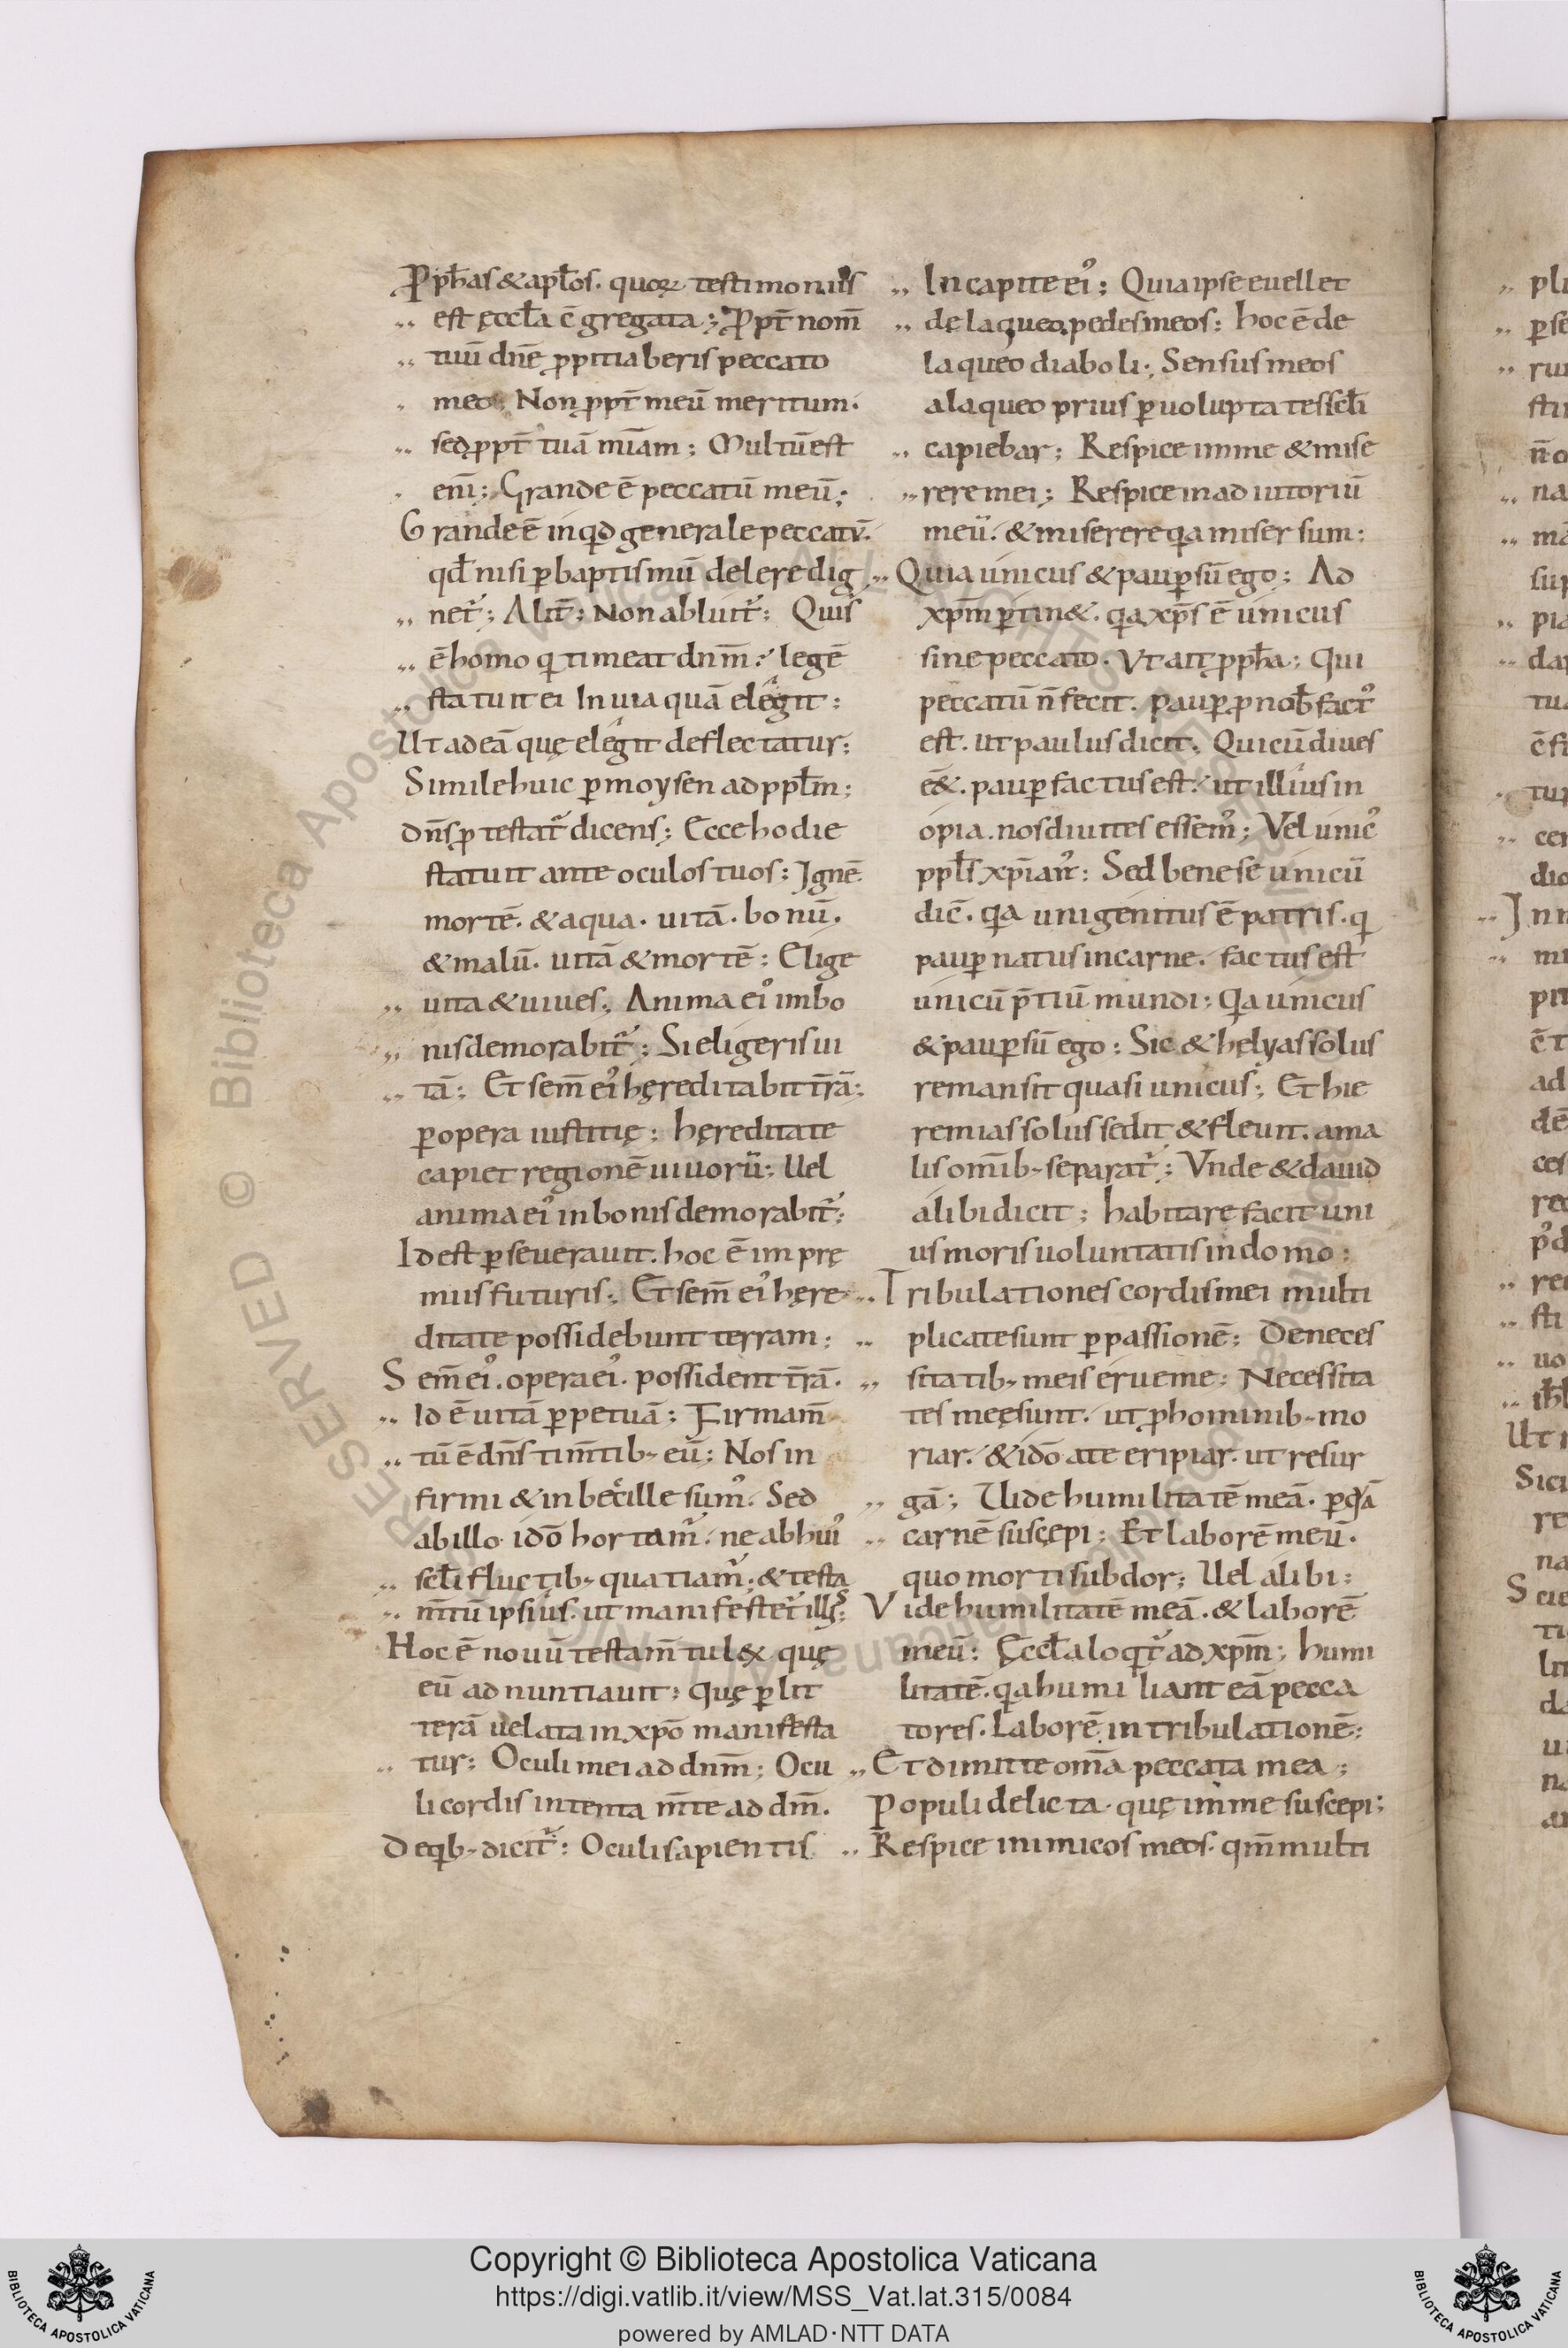 Pph̄as & apl̄os. quoꝝ testimoniis
est ęccl̄a c̄gregata; Ppt̄ nom̄
tuū dn̄e ꝓpitiaberis peccato
meo; Non ꝓpt̄ meū meritum.
sed ꝓpt̄ tuā mīam; Multū est
enī; Grande ē peccatū meū;
Grande ē inqd generale peccatū.
qd̄ nisi ꝑ baptismū delere dig
net᷑; Alit̄; Non abluit᷑; Quis
ē homo qi timeat dnm̄? legē
statuit ei In uia quā elegit;
Ut ad eā quę elegit deflectatur;
Simile huic ꝑ moysen ad ppl̄m;
Dn̄s ꝓtestat᷑ dicens; Ecce hodie
statuit ante oculos tuos; Ignē.
mortē. & aqua. uitā. bonū.
& malū. uitā & mortē; Elige
uita & uiues; Anima ei᾽ im bo
nis demorabit᷑; Si eligeris ui
tā; Et sem̄ ei᾽ hęreditabit t̄rā;
ꝑ opera iustitię; hęreditate
capiet regionē uiuorū; Uel
anima ei᾽ in bonis demorabit᷑;
Id est ꝑseuerauit. hoc ē im prę
mus futuris; Et sem̄ ei᾽ hęre
ditate possidebunt terram;
Sem̄ ei᾽. opera ei᾽. possident t̄rā.
Id ē uitā ꝑpetuā; Firmam̄
tū ē dn̄s tim̄tib; eū; Nos in
firmi & inbecille sum᾽. Sed
ab illo idō hortam᷑. ne ab hui᾽
scl̄i fluctib; quatiam᷑; & testa
m̄tū ipsius. ut manifestet᷑ illis;
Hoc ē nouū testam̄tū l& quę
eū adnuntiauit; Quę ꝑ lit
terā uelata in xp̄o manifesta
tur; Oculi mei ad dnm̄; Ocu
li cordis intenta m̄te ad dm̄.
De qib; dicit᷑; Oculi sapientis
In capite ei᾽; Quia ipse euellet
dę laqueo pedes meos; hoc ē de
laqueo diaboli; Sensus meos
a laqueo prius ꝑ uoluptates scl̄i
capiebar; Respice in me & mise
rere mei; Respice in adiutoriū
meū. & miserere qa miser sum;
Quia unicus & pauꝑ sū ego; Ad
xpm̄ ꝑtin&. qa xp̄s ē unicus
sine peccato. Vt ait ꝓph̄a; Qui
peccatū n̄ fecit. pauꝑ ꝓ nob̄ fact᾽
est. ut paulus dicit. Qui cū diues
ē&. pauꝑ factus est. ut illius in
opia. nos diuites essem᾽; Vel unic᾽
ppl̄s xp̄ian᾽; Sed bene se unicū
dic̄. qa unigenitus ē patris. qi
pauꝑ natus in carne. factus est
unicū p̄tiū mundi; Qa unicus
& pauꝑ sū ego; Sic & hęlyas solus
remansit quasi unicus; Et hie
remias solus sedit & fleuit. a ma
lis om̄ib; separat᷑; Vnde & dauid
alibi dicit; habitare facit uni
us moris uoluntatis in domo;
Tribulationes cordis mei multi
plicate sunt ꝑ passionē; De neces
sitatib; meis erue me; Necessita
tes meę sunt. ut ꝓ hominib; mo
riar. & idō a te eripiar. ut resur
gā; Uide humilitatē meā. ꝑ quā
carnē suscępi; Et laborē meū.
quo morti subdor; Uel alibi;
Vide humilitatē meā. & laborē
meū; Ęccl̄a loqit᷑ ad xpm̄; humi
litatē. qa humiliant eā pecca
tores. Laborē in tribulationē;
Et dimitte om̄a peccata mea;
Populi delicta. quę in me suscepi;
Respice inimicos meos. qm̄ multi
Copyright © Biblioteca Apostolica Vaticana
https://digi.vatlib.it/view/MSS_Vat.lat.315/0084
powered by AMLAD·NTT DATA